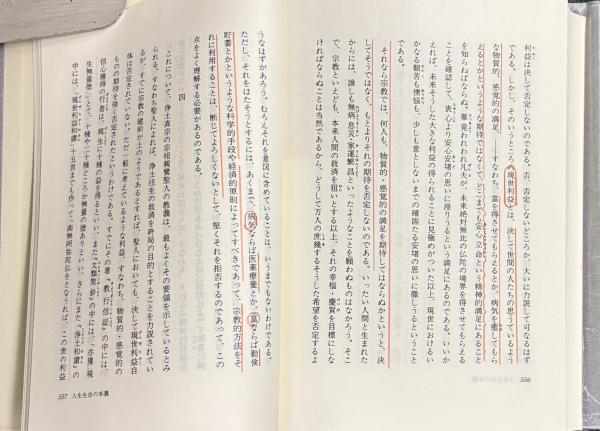 利益は決して否定しないのである。否、否定しないどころか、大いに力説して可なるはず
である。しかし、そのいうところの現世利益は、決して世間の人たちの思うているよう
な物質的、感覚的の満足、――すなわち、富を得させてもらえるとか、病気を癒してもら
えるとかいうような期待ではなくて、どこまでも安心立命という精神的満足にあること
を知らねばならぬ。畢竟われわれ凡夫が、未来絶対無比の仏陀の境界を得させてもらえる
ことを確認して、衷心より安心安堵の思いに浸りうるという満足にあるのである。いいか
えれば、未来そうした大きな利益の得られることに見極めがついた以上、現世におけるい
かなる艱苦も懊悩も、少しも意としないまでの確固たる安堵の思いに徹しうるということ
である。
それなら宗教では、何人も、物質的・感覚的の満足を期待してはならぬかというと、決
してそうではなく、もとよりそれの期待を否定しないのである。いったい人間と生まれた
からには、誰しも無病息災・家運繁昌といったようなことを願わぬものはなかろう。そこ
で、宗教といえども、本来人間の救済を狙いとする以上、それの幸福・慶賀を目標にしな
ければならぬことは当然であるから、どうして万人の庶幾するそうした希望を否定するよ
556
うなはずがあろう。むろんそれを意図に含めていることは、いうまでもないわけである。
ただし、それをはたそうとするには、あくまで、病気ならば医薬療養とか、富ならば勤倹
貯蓄とかというような科学的手段や経済的原則によってすべきであって、宗教的方法をそ
れに利用することは、断じてよろしくないとして、堅くそれを拒否するのであって、この
点をよく理解する必要があるのである。
四
これについて、浄土真宗の宗祖親鸞聖人の教義は、最もよくその要領を示しているとみ
られる。すなわち聖人によれば、浄土往生の救済を終局の目的とすることを力説されてい
るが、すでに宗教の建前が上のようであるとすれば、聖人においても、決して現世利益自
体は否定されていない。ただ一般に考えているような利益、すなわち、物質的・感覚的の
ものの期待を強く否定されたというわけである。すでにその著『教行信証』の中には、
信心獲得の行者は、現生に十種の益を得るといい、また『文類聚鈔』の中には、「亦獲現
生無量徳」とて、十種や二十種どころか無量の徳ありといい、さらにまた『浄土和讃』の
中には、「現世利益和讃」十五首までも作って「南無阿弥陀仏をとなうれば、この世の利益
557 人生生活の本義